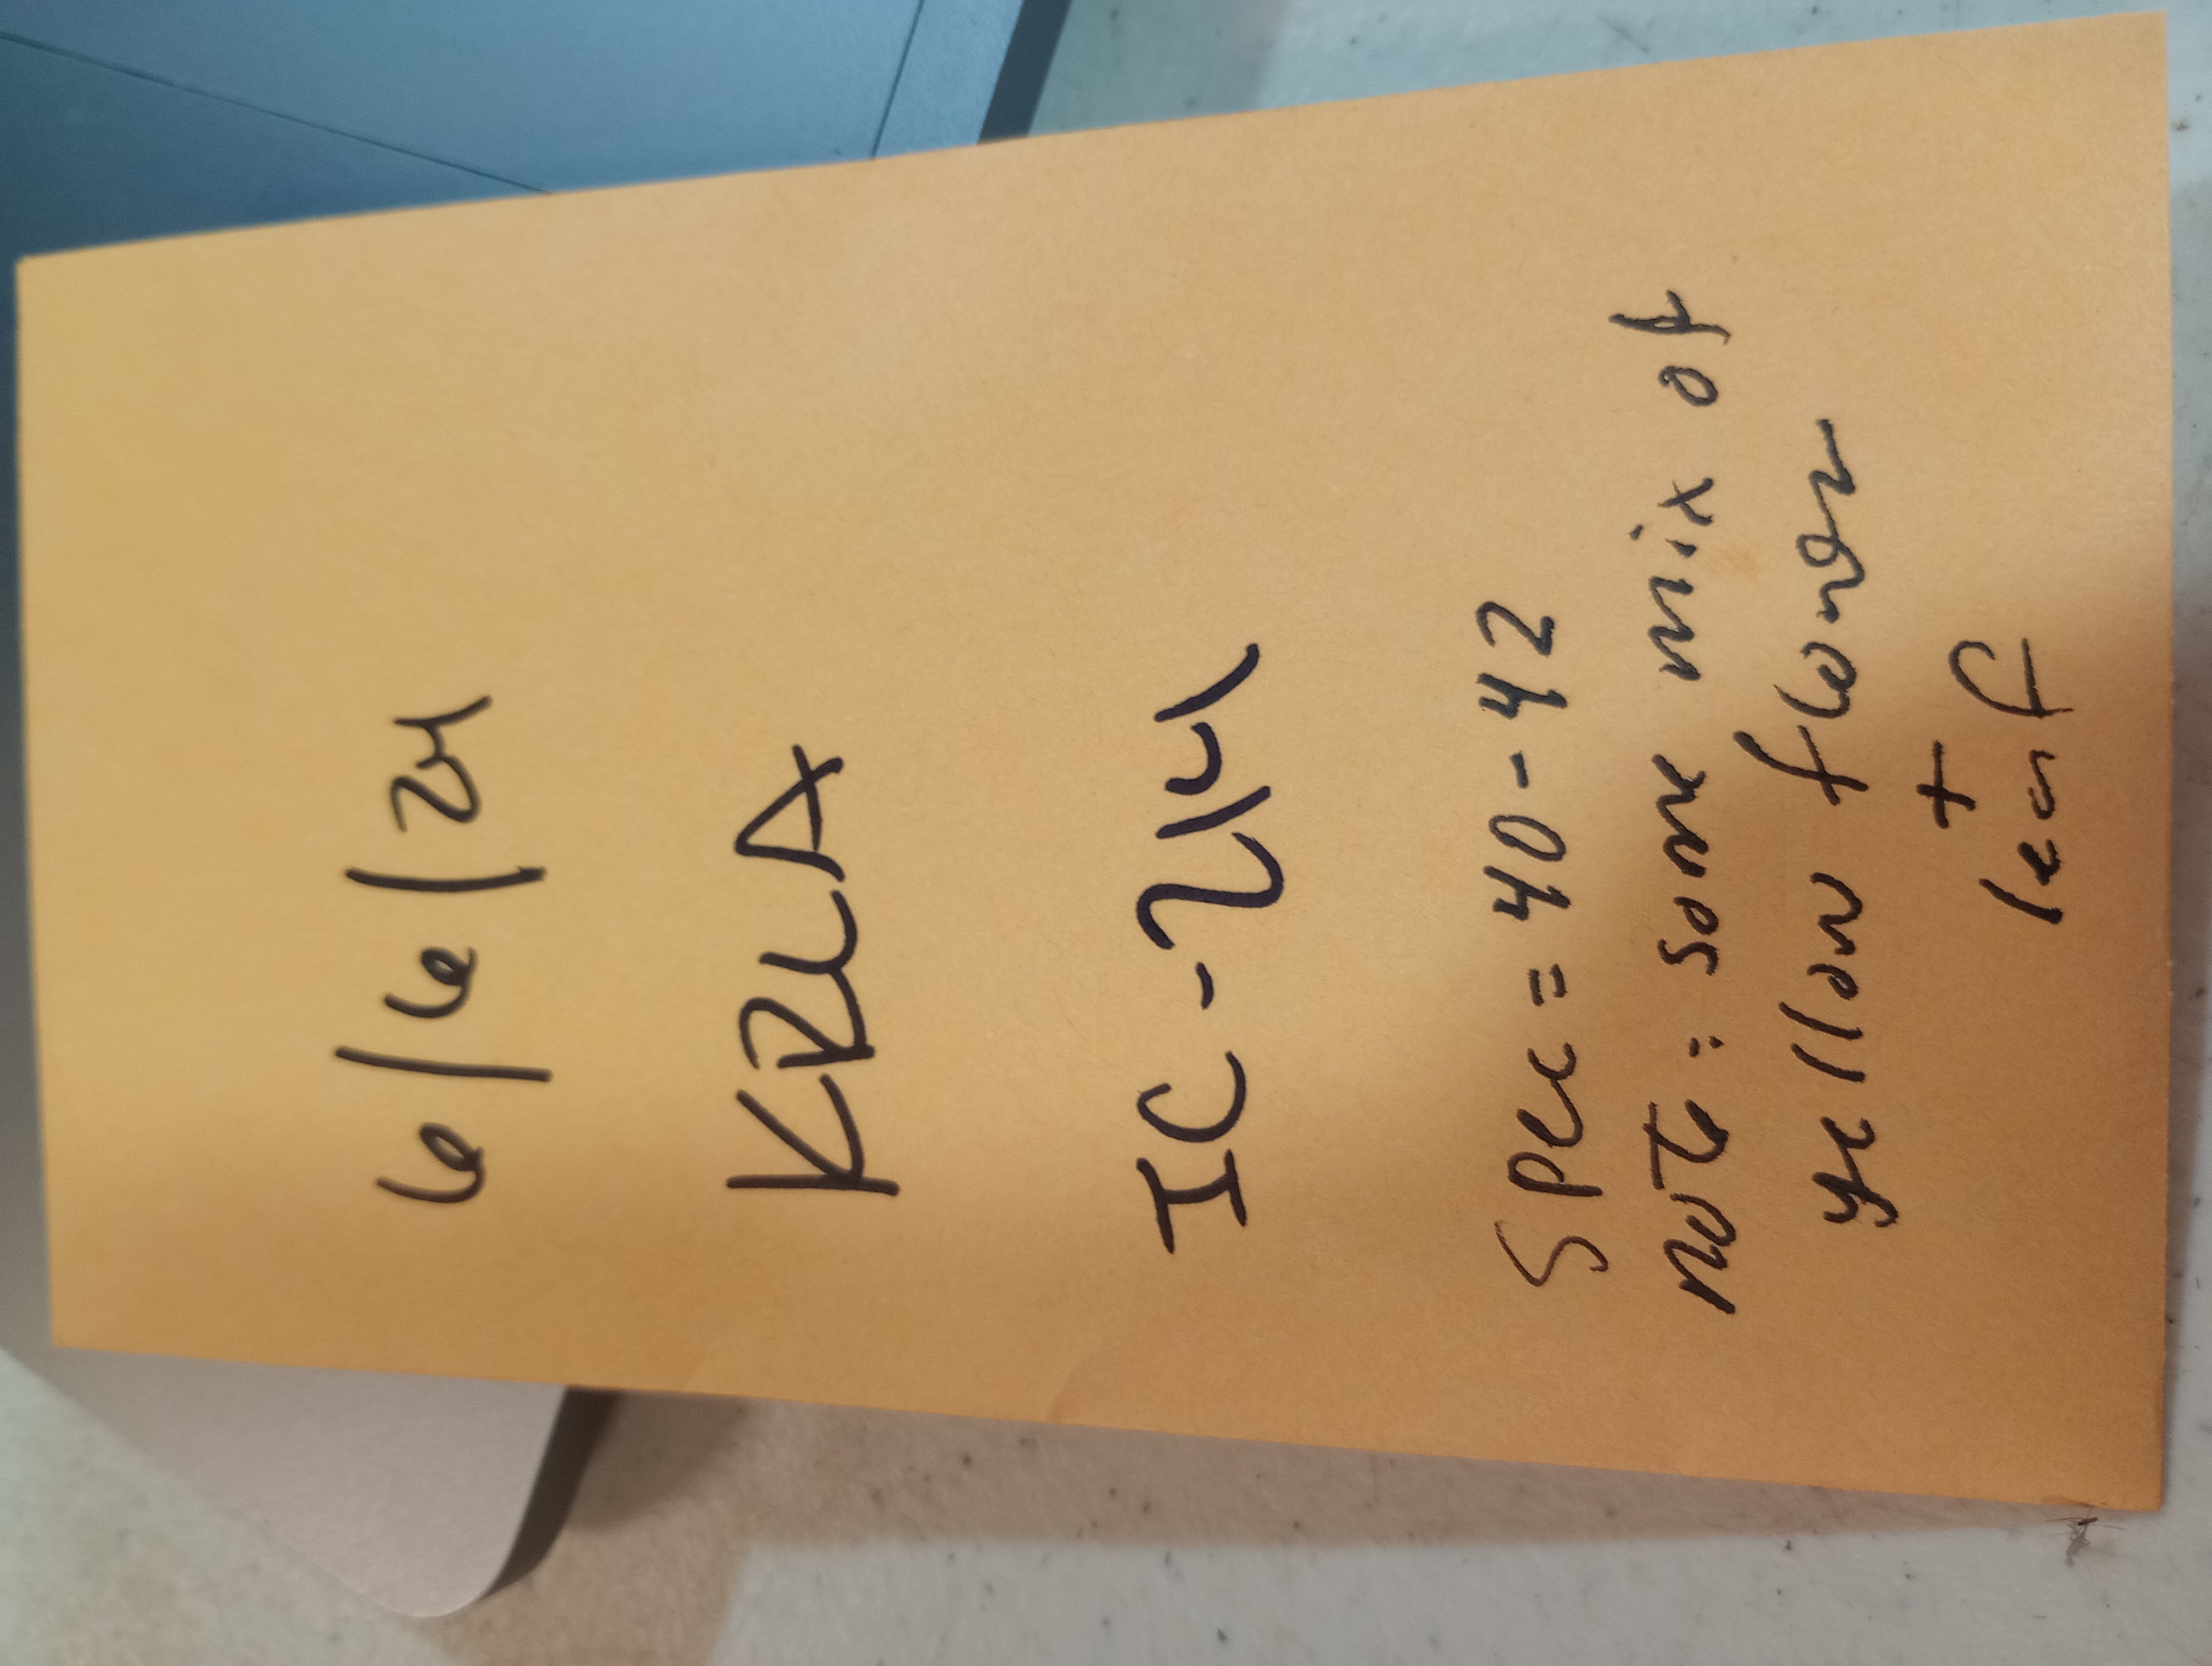 6/6/24
KRLA
IC-214
Spec = 40-42
note: some mix of
yellow flower
+
leaf